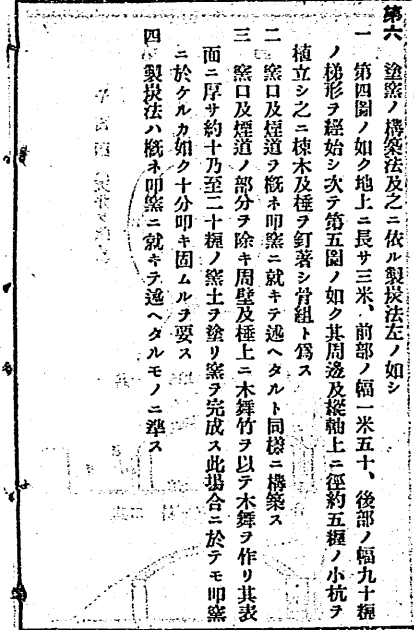 第六　塗窯ノ構築法及之ニ依ル製炭法左ノ如シ
一　第四圖ノ如ク地上ニ長サ三米、前部ノ幅一米五十、後部ノ幅九十糎
ノ梯形ヲ經始シ次テ第五圖ノ如ク其周邊及縱軸上ニ徑約五糎ノ小杭ヲ
植立シ之ニ棟木及棰ヲ釘著シ骨組ト爲ス
二　窯口及煙道ヲ概ネ叩窯ニ就キテ述ヘタルト同樣ニ構築ス
三　窯口及煙道ノ部分ヲ除キ周壁及棰上ニ木舞竹ヲ以テ木舞ヲ作リ其表
面ニ厚サ約十乃至二十糎ノ窯土ヲ塗リ窯ヲ完成ス此場合ニ於テモ叩窯
ニ於ケルカ如ク十分叩キ固ムルヲ要ス
四　製炭法ハ概ネ叩窯ニ就キテ述ヘタルモノニ準ス